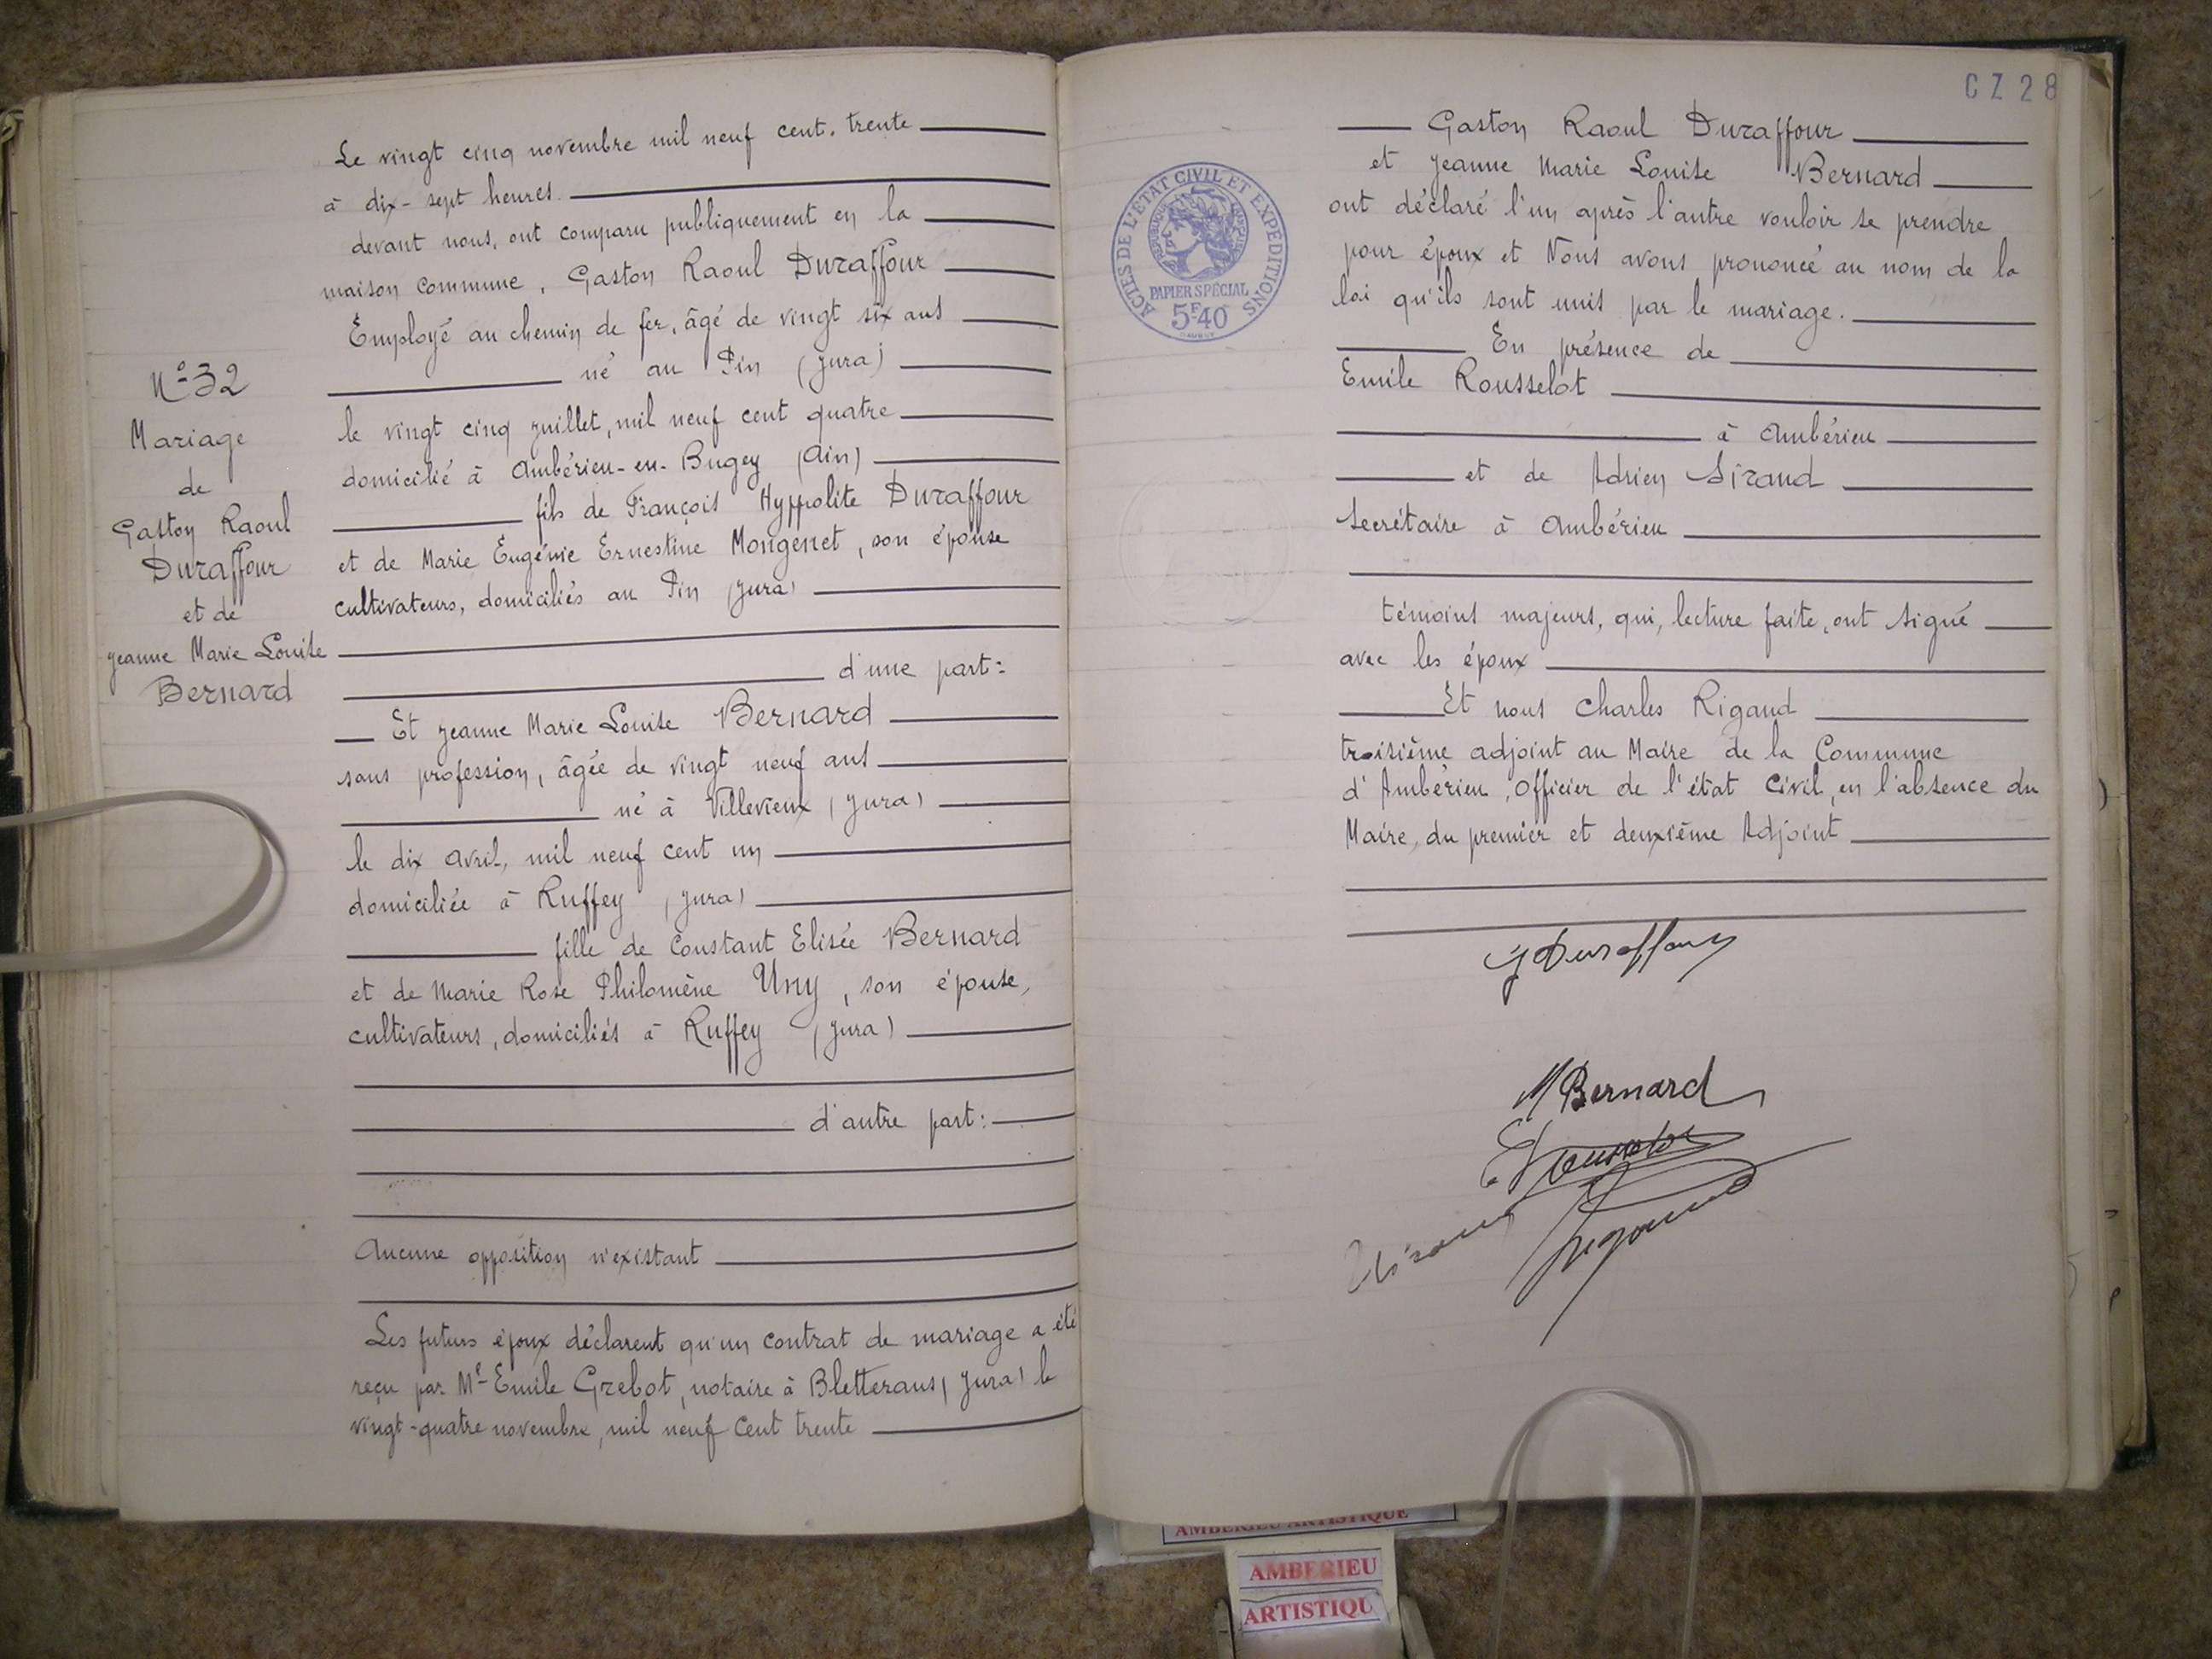 Le vingt cinq novembre mil neuf cent. trente
à dix-sept heures
devant nous, ont comparu publiquement en la
maison commune, Gaston Raoul Duraffour
Employé au chemin de fer, âgé de vingt six ans
né au Pin (Jura)
le vingt cinq juillet, mil neuf cent quatre
domicilié à Ambérieu-en-Bugey (Ain)
fils de François Hyppolite Duraffour
et de Marie Eugénie Ernestine Mongenet, son épouse
cultivateurs, domiciliés au Pin (Jura)
d'une part:
Et Jeanne Marie Louise Bernard
sans profession, âgée de vingt neuf ans
né à Villevieux (Jura)
le dix avril, mil neuf cent un
domiciliée à Ruffey (Jura)
fille de Constant Elisée Bernard
et de Marie Rose Philomène Uny, son épouse,
cultivateurs, domiciliés à Ruffey (Jura)
d'autre part:
Aucune opposition n'existant
Les futurs époux déclarent qu'un contrat de mariage a été
reçu par Me Emile Grebot, notaire à Bletterans (Jura) le
vingt-quatre novembre, mil neuf cent trente
No 32
Mariage
de
Gaston Raoul
Duraffour
et de
Jeanne Marie Louise
Bernard
CZ 28
ACTES DE L'ÉTAT CIVIL ET EXPÉDITIONS
RÉPUBLIQUE FRANÇAISE
PAPIER SPÉCIAL
5F40
Gaston Raoul Duraffour
et Jeanne Marie Louise Bernard
ont déclaré l'un après l'autre vouloir se prendre
pour époux et Nous avons prononcé au nom de la
loi qu'ils sont unis par le mariage.
En présence de
Emile Rousselot
à Ambérieu
et de Adrien Sirand
Secrétaire à Ambérieu
témoins majeurs, qui, lecture faite, ont signé
avec les époux
Et nous Charles Rigaud
troisième adjoint au Maire de la Commune
d'Ambérieu, Officier de l'état Civil, en l'absence du
Maire, du premier et deuxième Adjoint
G Duraffour
M Bernard
E Rousselot
AMBERIEU ARTISTIQUE
AMBERIEU
ARTISTIQU